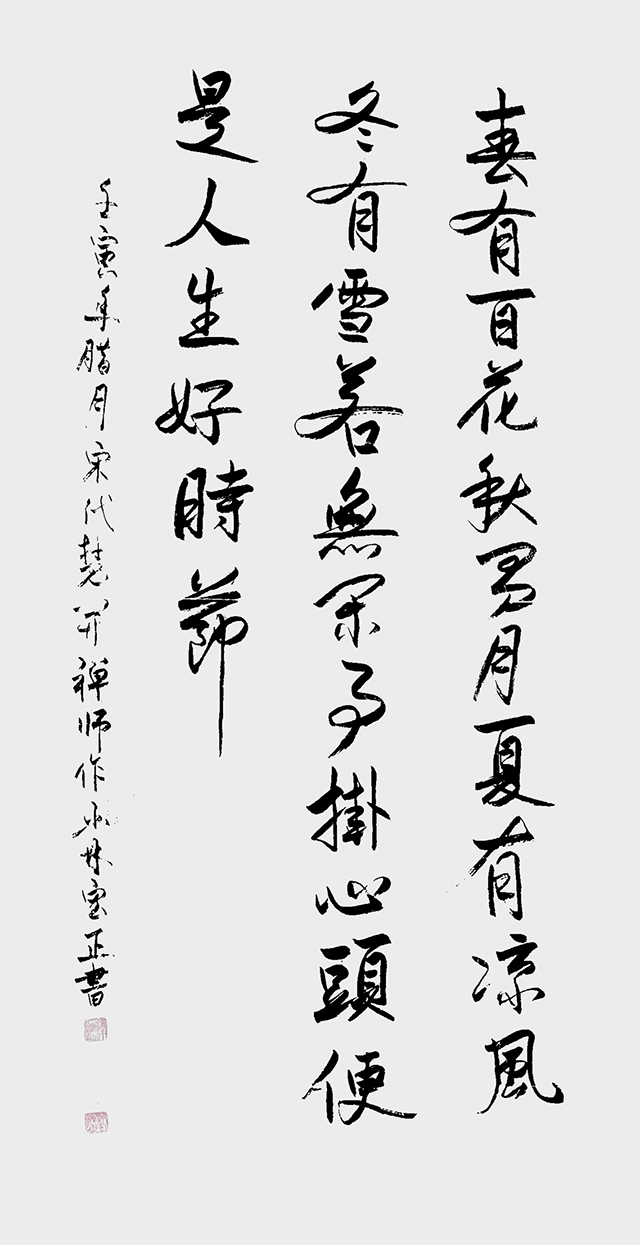 春有百花秋有月夏有凉風
冬有雪若無閑事掛心頭便
是人生好時節
壬寅年腊月宋代慧開禪師作 林 正書